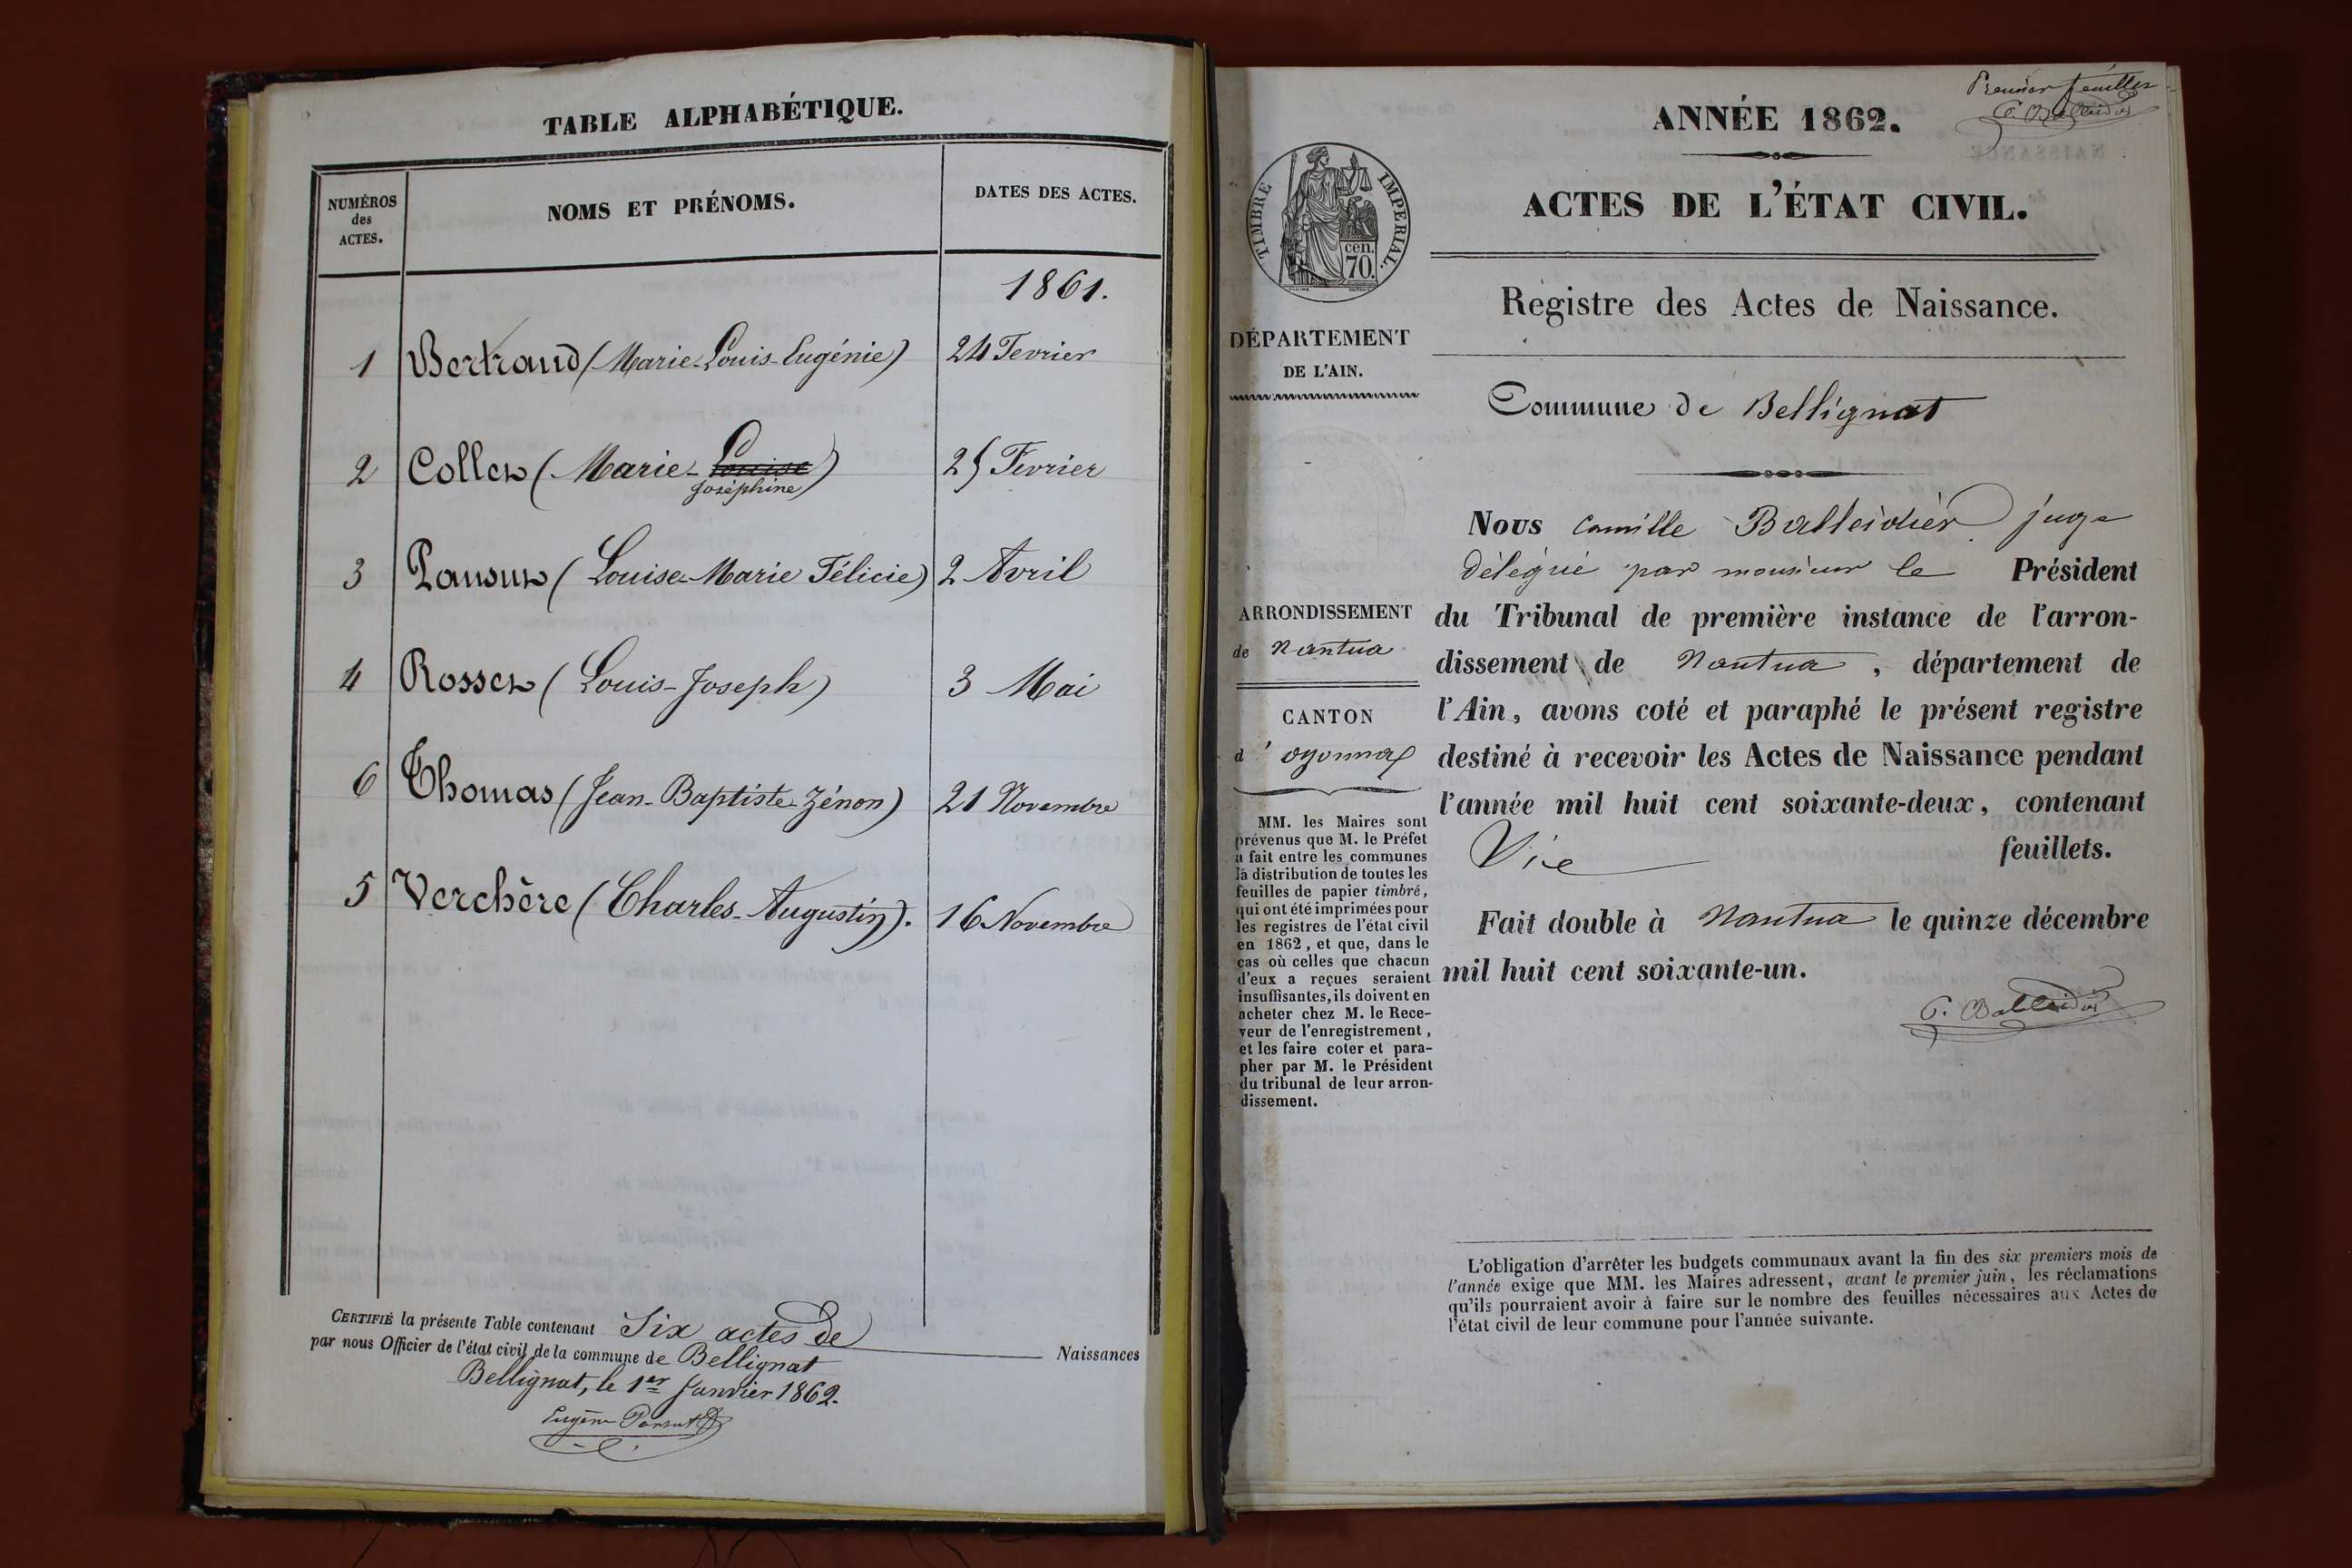 TABLE ALPHABÉTIQUE.
NUMÉROS des ACTES.
NOMS ET PRÉNOMS.
DATES DES ACTES.
1861.
1 Bertrand (Marie-Louis-Eugénie) 24 Fevrier
2 Collet (Marie-Louise) 25 Fevrier
Joséphine
3 Pansut (Louise-Marie Félicie) 2 Avril
4 Rosset (Louis-Joseph) 3 Mai
6 Thomas (Jean-Baptiste-Zénon) 21 Novembre
5 Verchère (Charles-Augustin). 16 Novembre
CERTIFIÉ la présente Table contenant Six actes de Naissances
par nous Officier de l'état civil de la commune de Bellignat
Bellignat, le 1er Janvier 1862.
Eugène Pansut
Premier feuillet
C. Balleidier
ANNÉE 1862.
ACTES DE L'ÉTAT CIVIL.
Registre des Actes de Naissance.
Commune de Bellignat
TIMBRE IMPERIAL.
cen.
70.
DÉPARTEMENT
DE L'AIN.
ARRONDISSEMENT
de Nantua
CANTON
d'oyonnax
MM. les Maires sont
prévenus que M. le Préfet
a fait entre les communes
la distribution de toutes les
feuilles de papier timbré,
qui ont été imprimées pour
les registres de l'état civil
en 1862, et que, dans le
cas où celles que chacun
d'eux a reçues seraient
insuffisantes, ils doivent en
acheter chez M. le Rece-
veur de l'enregistrement,
et les faire coter et para-
pher par M. le Président
du tribunal de leur arron-
dissement.
Nous Camille Balleidier juge
délégué par monsieur le Président
du Tribunal de première instance de l'arron-
dissement de Nantua, département de
l'Ain, avons coté et paraphé le présent registre
destiné à recevoir les Actes de Naissance pendant
l'année mil huit cent soixante-deux, contenant
feuillets.
Fait double à Nantua le quinze décembre
mil huit cent soixante-un.
C. Balleidier
L'obligation d'arrêter les budgets communaux avant la fin des six premiers mois de
l'année exige que MM. les Maires adressent, avant le premier juin, les réclamations
qu'ils pourraient avoir à faire sur le nombre des feuilles nécessaires aux Actes de
l'état civil de leur commune pour l'année suivante.